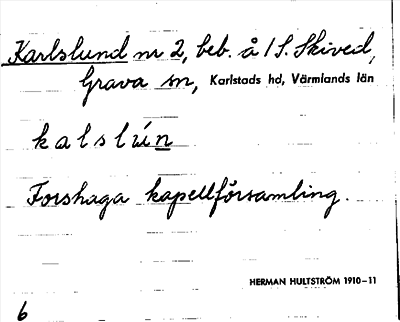 Karlslund nr 2, beb. å 1 S. Skived,
Grava sn, Karlstads hd, Värmlands län
kalslún
Forshaga kapellförsamling.
HERMAN HULTSTRÖM 1910–11
6